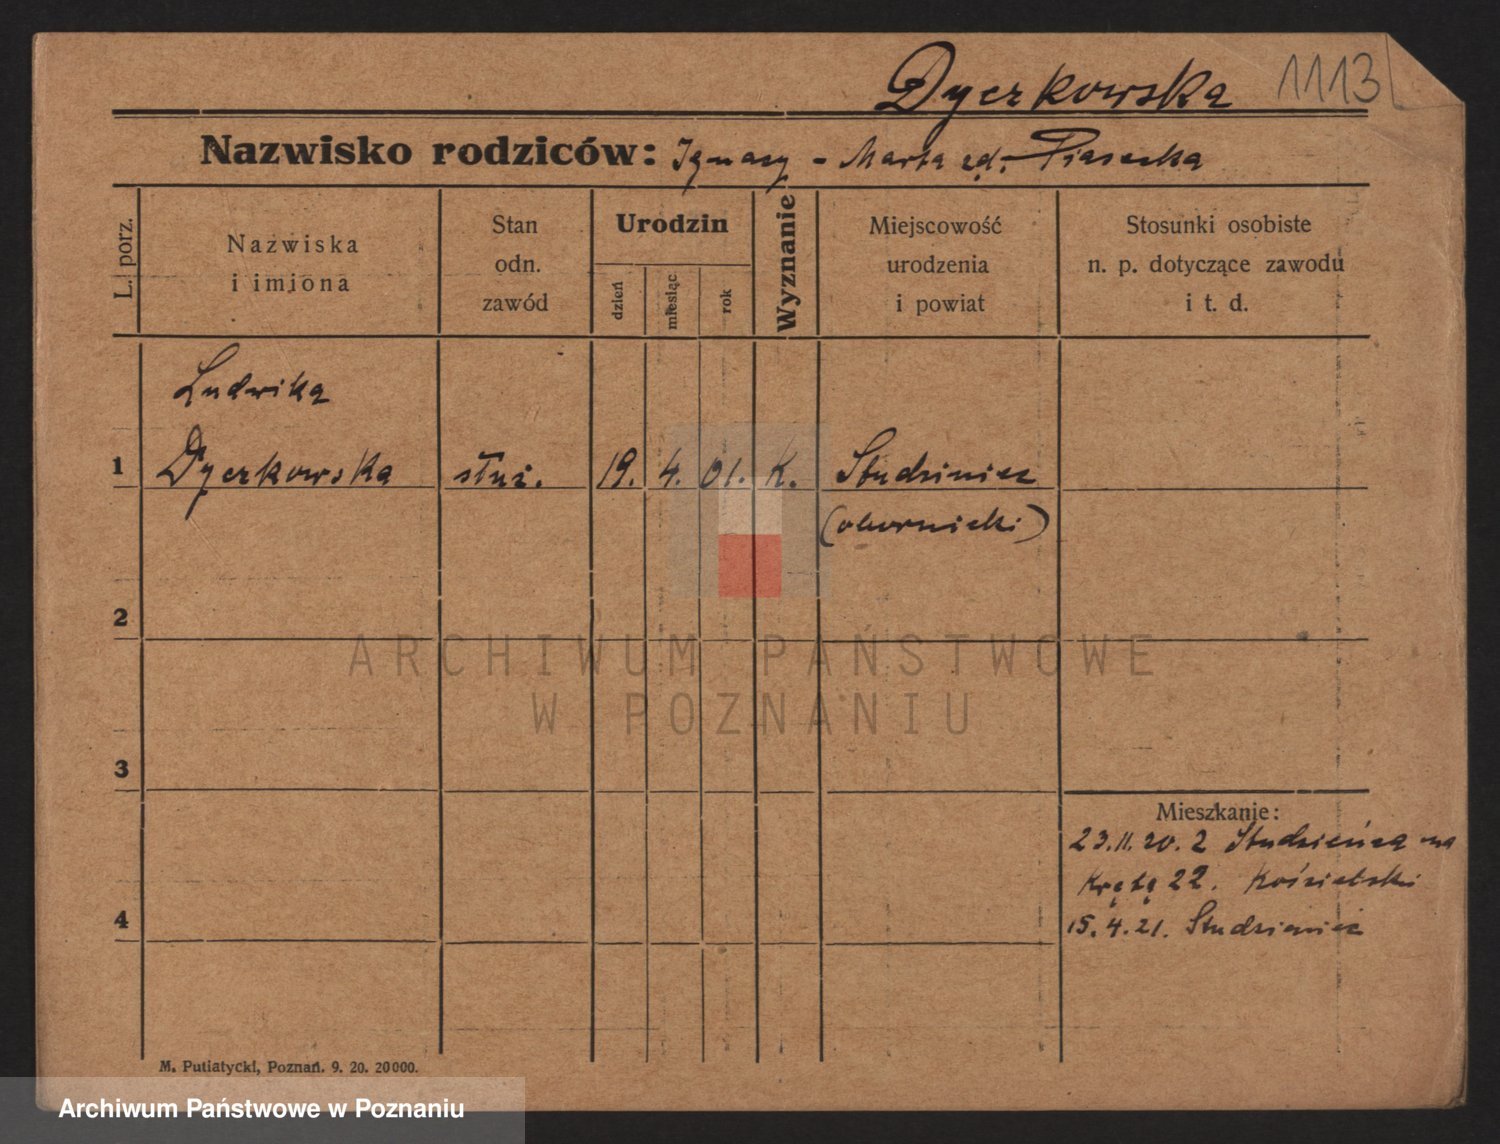 Dyerkowska 1113
Nazwisko rodziców: Ignacy - Marta Piasecka
L. porz.
Nazwiska
i imiona
Stan
odn.
zawód
Urodzin
dzień
miesiąc
rok
Wyznanie
Miejscowość
urodzenia
i powiat
Stosunki osobiste
n. p. dotyczące zawodu
i t. d.
Ludwika
1 Dyerkowska służ. 19. 4. 01. K. Studziniec
(obornicki)
2
ARCHIWUM PAŃSTWOWE
W POZNANIU
3
Mieszkanie:
23.11.20. z Studzieńca na
Krętą 22. Kościelski
4
15.4.21. Studzieniec
M. Putiatycki, Poznań. 9. 20. 20000.
Archiwum Państwowe w Poznaniu